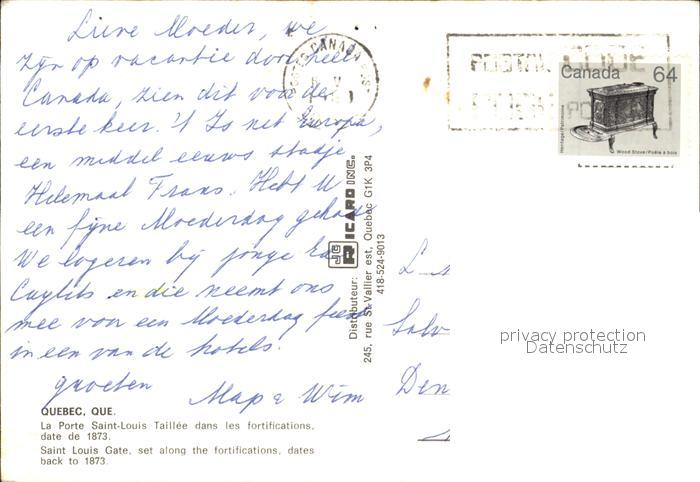 Lieve Moeder, we
zijn op vacantie door heel
Canada, zien dit voor de
eerste keer. 't Is net Europa,
een middel eeuws stadje
Helemaal Frans. Hebt U
een fijne Moederdag gehad
We logeren bij jonge
en die neemt ons
mee voor een Moederdag feest
in een van de hotels.
groeten
Wim
QUEBEC, QUE.
La Porte Saint-Louis Taillée dans les fortifications,
date de 1873.
Saint Louis Gate, set along the fortifications, dates
back to 1873.
Distributeur:
RICARD INC.
245, rue St-Vallier est, Quebec G1K 3P4
418-524-9013
CANADA
POSTAL CODE
Canada 64
Heritage/Patrimoine
Wood Stove/Poêle à bois
Den
privacy protection
Datenschutz